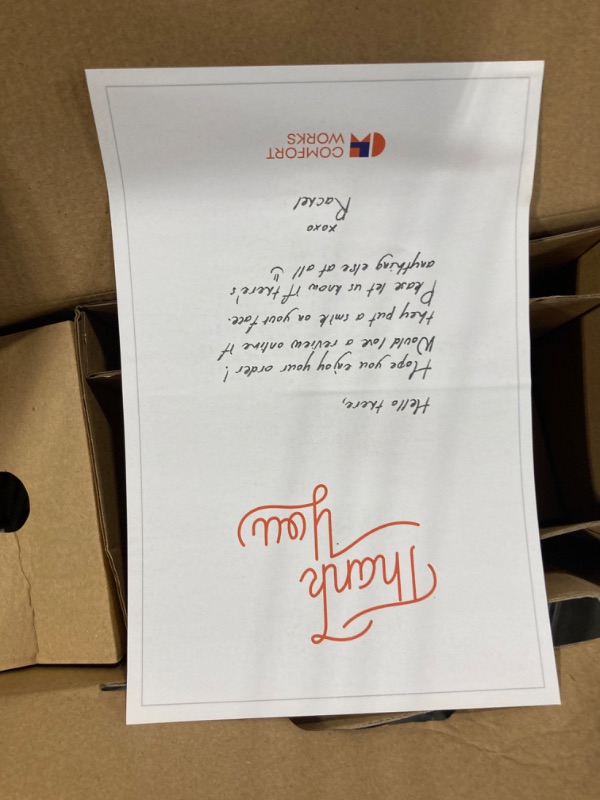 Thank
you
Hello there,
Hope you enjoy your order!
Would love a review online if
they put a smile on your face.
Please let us know if there's
anything else at all ☺
xoxo
Rachel
COMFORT
WORKS